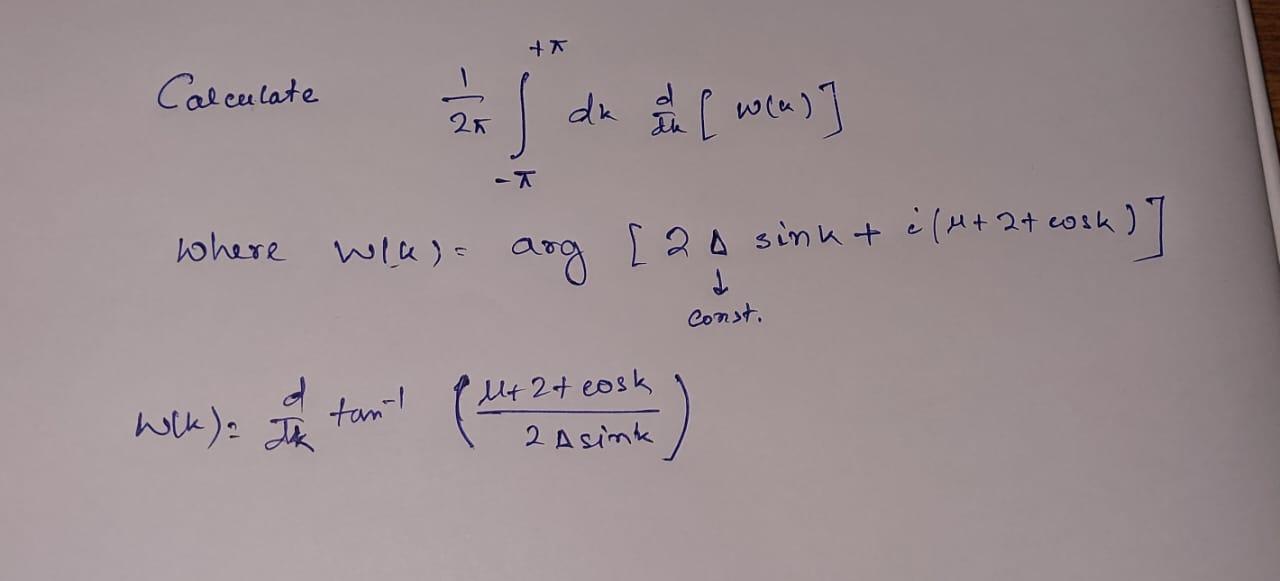 Calculate 1/2π ∫_{-π}^{+π} dk d/dk [ w(k) ]
where w(k) = arg [ 2 Δ sin k + i ( μ + 2 + cos k ) ]
↓
const.
w(k) = d/dk tan⁻¹ ( μ + 2 + cos k / 2 Δ sin k )